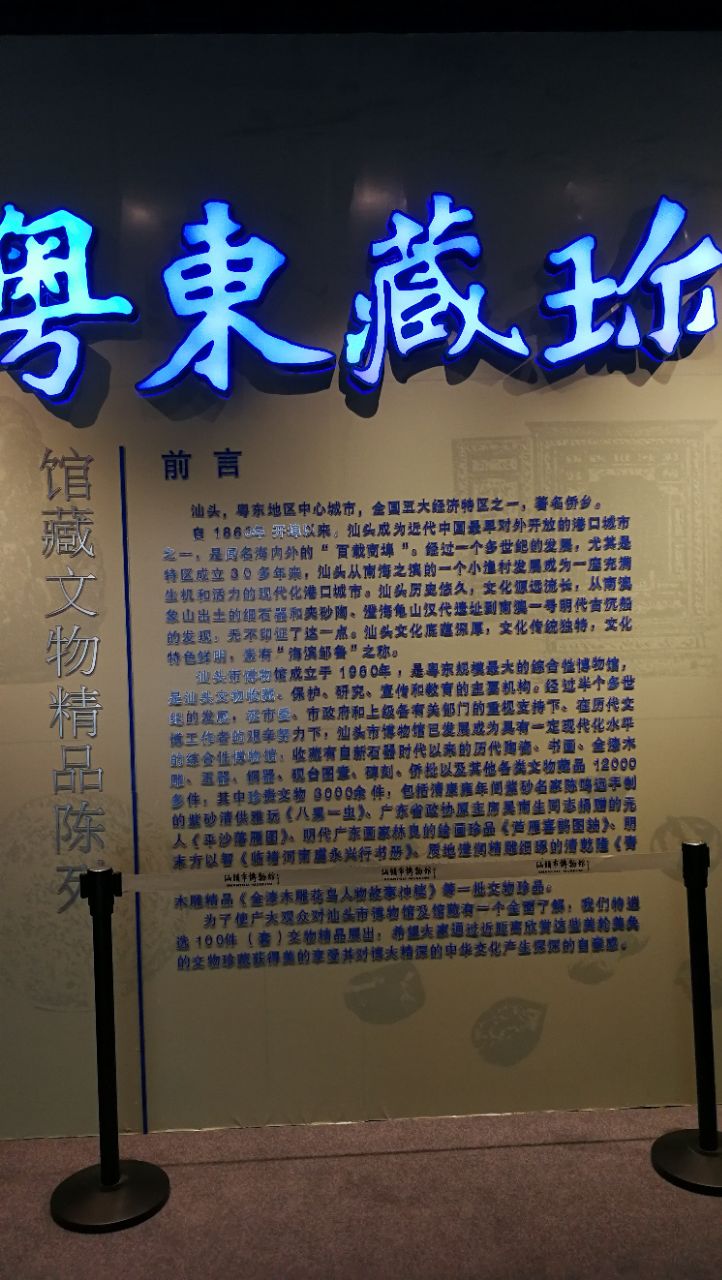 粤東藏珍
馆藏文物精品陈列
前言
汕头，粤东地区中心城市，全国五大经济特区之一，著名侨乡。
自1860年开埠以来，汕头成为近代中国最早对外开放的港口城市
之一，是闻名海内外的“百载商埠”。经过一个多世纪的发展，尤其是
特区成立30多年来，汕头从南海之滨的一个小渔村发展成为一座充满
生机和活力的现代化港口城市。汕头历史悠久，文化源远流长，从南澳
象山出土的细石器和夹砂陶、澄海龟山汉代遗址到南澳一号明代古沉船
的发现，无不印证了这一点。汕头文化底蕴深厚，文化传统独特，文化
特色鲜明，素有“海滨邹鲁”之称。
汕头市博物馆成立于1960年，是粤东规模最大的综合性博物馆，
是汕头文物收藏、保护、研究、宣传和教育的主要机构。经过半个多世
纪的发展，在市委、市政府和上级各有关部门的重视支持下、在历代文
博工作者的艰辛努力下，汕头市博物馆已发展成为具有一定现代化水平
的综合性博物馆，收藏有自新石器时代以来的历代陶瓷、书画、金漆木
雕、玉器、铜器、砚台图章、碑刻、侨批以及其他各类文物藏品12000
多件，其中珍贵文物3000余件，包括清康雍年间紫砂名家陈鸣远手制
的紫砂清供雅玩《八果一虫》、广东省政协原主席吴南生同志捐赠的元
人《平沙落雁图》、明代广东画家林良的绘画珍品《芦雁喜鹊图轴》、明
末方以智《临褚河南盛永兴行书册》、质地莹润精雕细琢的清乾隆《青
汕頭市博物馆
汕頭市博物馆
汕頭市博物馆
木雕精品《金漆木雕花鸟人物故事神龛》等一批文物珍品。
为了使广大观众对汕头市博物馆及馆藏有一个全面了解，我们特遴
选100件（套）文物精品展出，希望大家通过近距离欣赏这些美轮美奂
的文物珍藏获得美的享受并对博大精深的中华文化产生深深的自豪感。